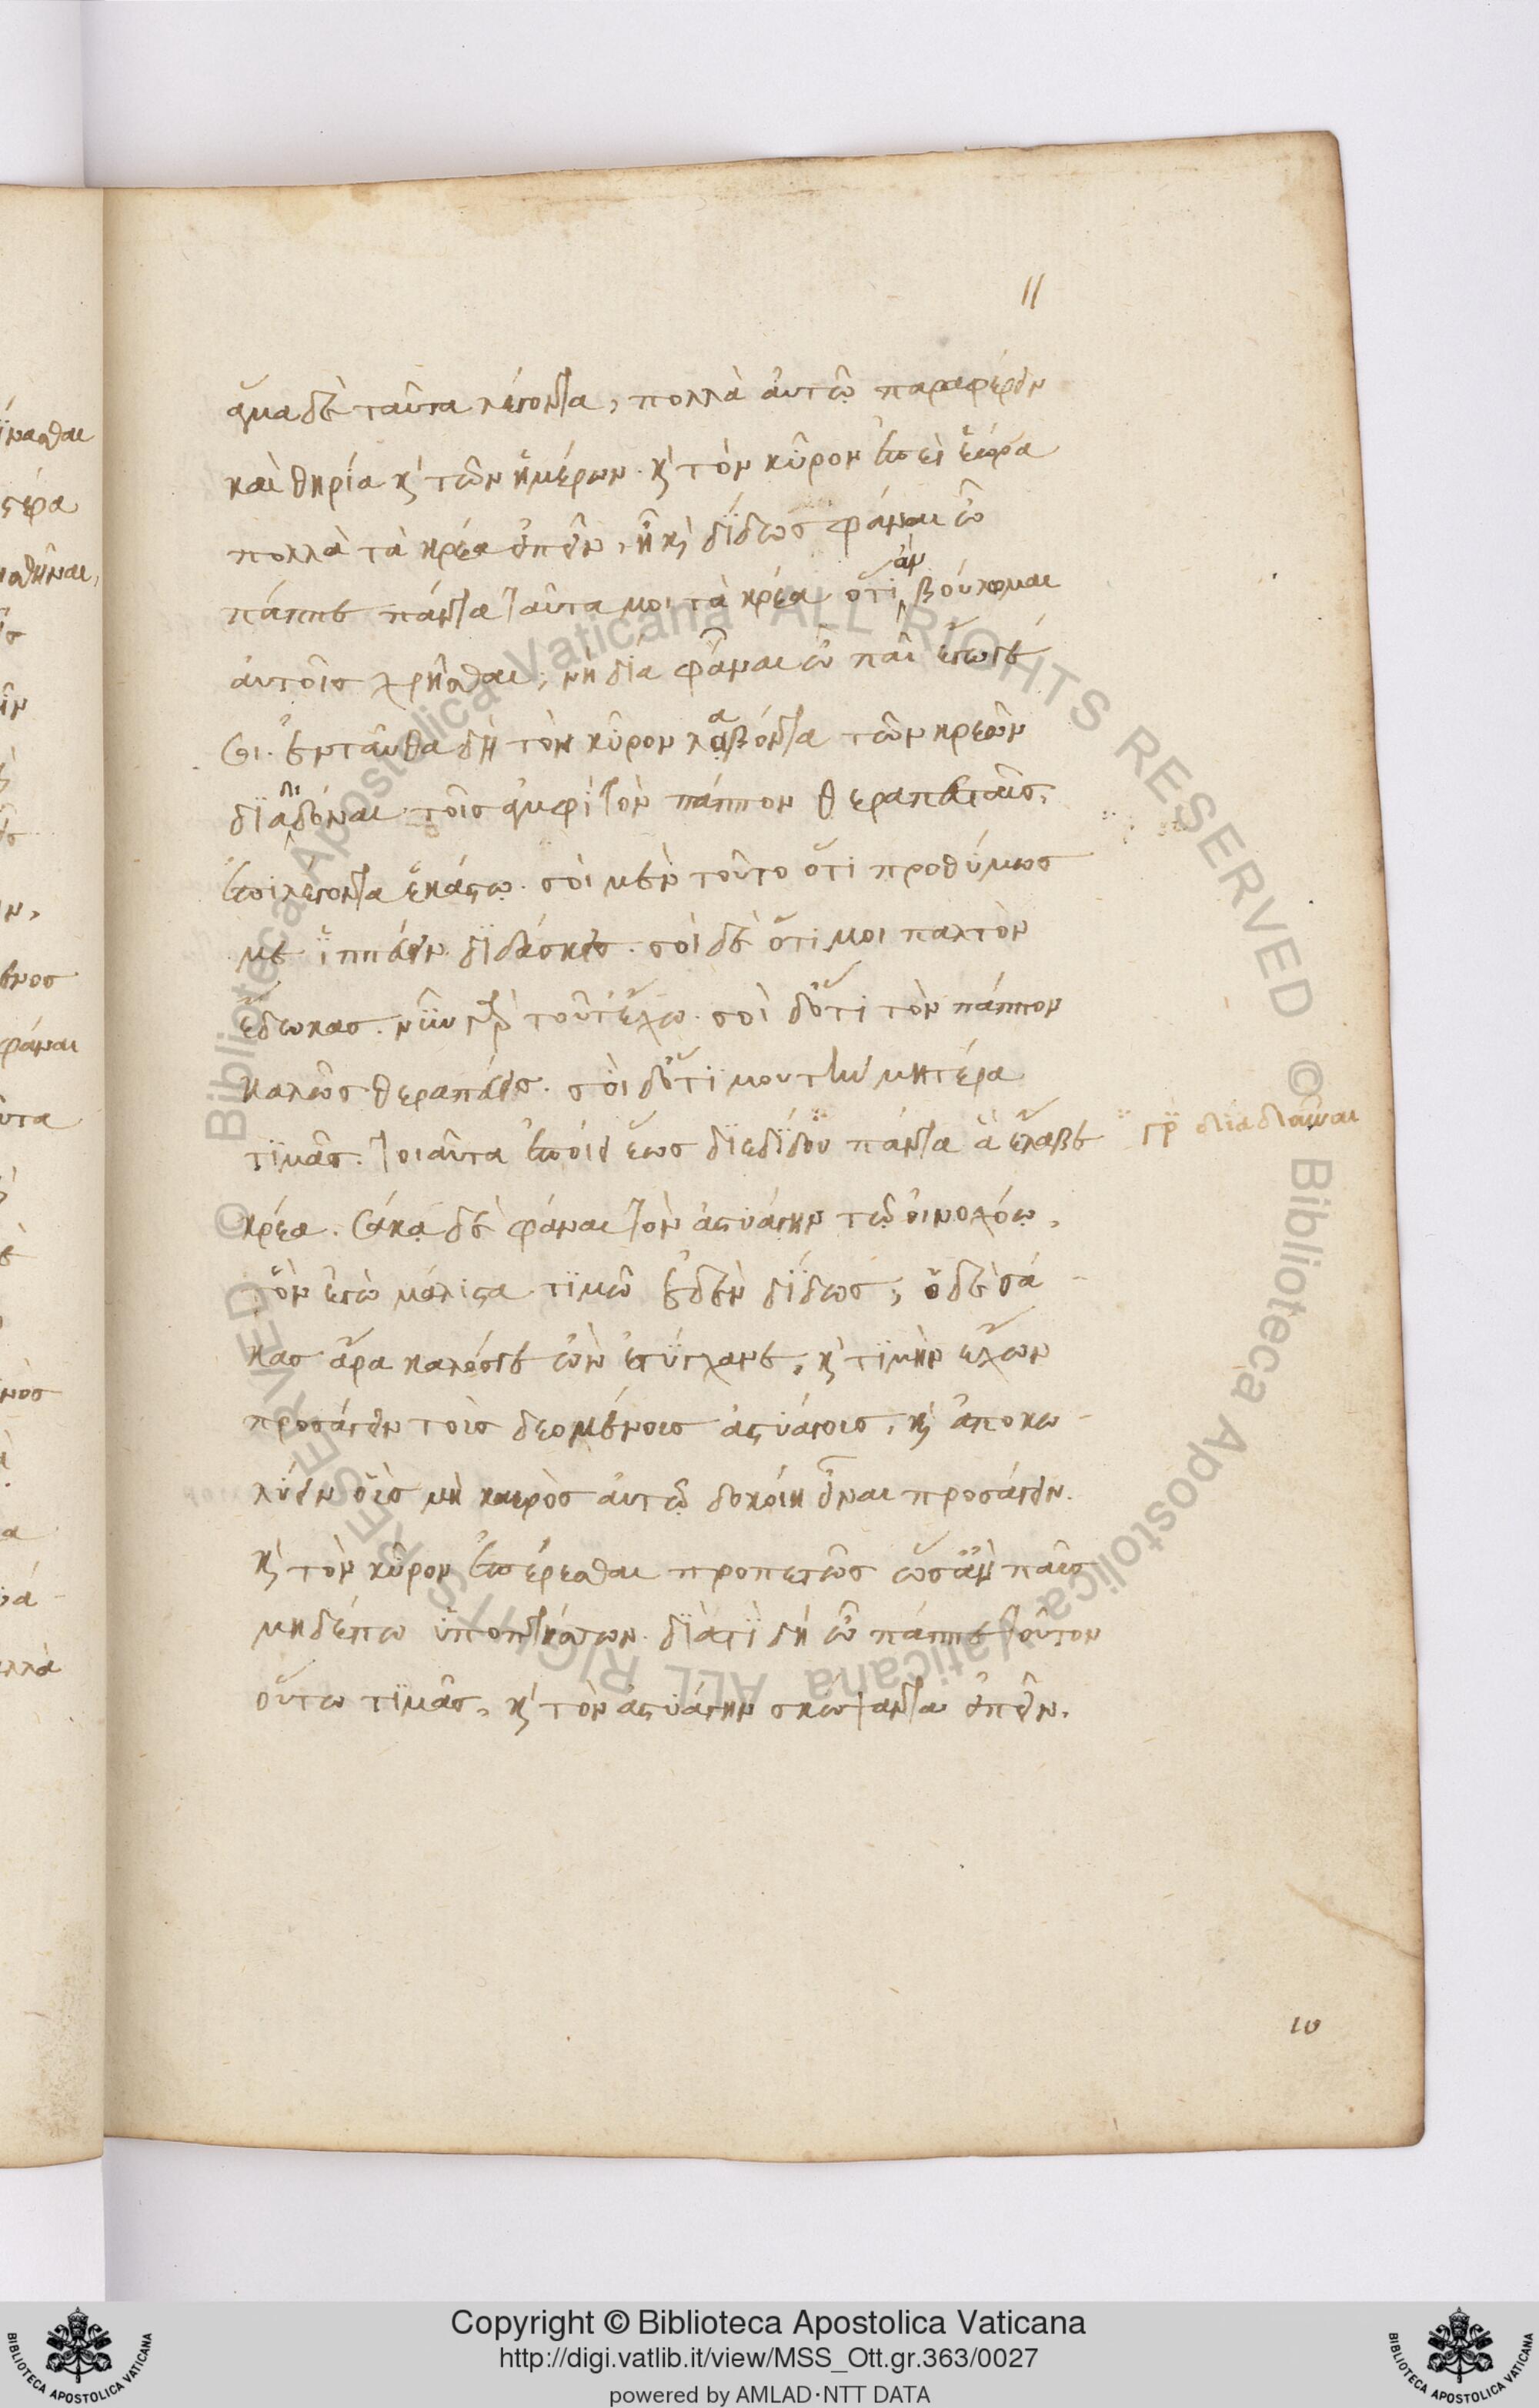 11
ἅμα δὲ ταῦτα λέγοντα, πολλὰ αὐτῷ παραφέρειν
καὶ θηρία κ̀ τῶν ἡμέρων. κ̀ τὸν κῦρον ἐπεὶ ἑώρα
πολλὰ τὰ κρέα εἰπεῖν, ἦ κ̀ δίδως φάναι ὦ
πάππε πάντα ταῦτα μοι τὰ κρέα ὅτι ἂν βούλομαι
αὐτοῖς χρῆσθαι; νὴ δία φάναι ὦ παῖ ἔγωγέ
σοι. ἐνταῦθα δὴ τὸν κῦρον λαβόντα τῶν κρεῶν
διαδιδόναι τοῖς ἀμφὶ τὸν πάππον θεραπευταῖς.
ἐπιλέγοντα ἑκάστῳ. σοὶ μὲν τοῦτο ὅτι προθύμως
με ἱππεύειν διδάσκεις. σοὶ δὲ ὅτι μοι παλτὸν
ἔδωκας. νῦν γὰρ τοῦτ' ἔχω. σοὶ δ' ὅτι τὸν πάππον
καλῶς θεραπεύεις. σοὶ δ' ὅτι μου τὴν μητέρα
τιμᾶς. τοιαῦτα ἐποίει ἕως διεδίδου πάντα ἃ ἔλαβε
κρέα. σάκᾳ δὲ φάναι τὸν ἀστυάγην τῷ οἰνοχόῳ,
ὃν ἐγὼ μάλιστα τιμῶ οὐδὲν δίδως; ὁ δὲ σά-
κας ἄρα καλός τε ὢν ἐτύγχανε, κ̀ τιμὴν ἔχων
προσάγειν τοὺς δεομένους ἀστυάγους, κ̀ ἀποκω-
λύειν οὓς μὴ καιρὸς αὐτῷ δοκοίη εἶναι προσάγειν.
κ̀ τὸν κῦρον ἐπερέσθαι προπετῶς ὡς ἂν παῖς
μηδέπω ὑποπτήσσων. διατί δὴ ὦ πάππε τοῦτον
οὕτω τιμᾶς, κ̀ τὸν ἀστυάγην σκώψαντα εἰπεῖν.
γρ
10
Copyright © Biblioteca Apostolica Vaticana
http://digi.vatlib.it/view/MSS_Ott.gr.363/0027
powered by AMLAD·NTT DATA